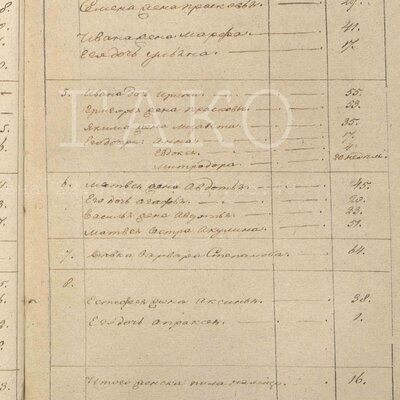 Семена жена Прасковья 29.
Ивана жена Марфа 41.
Ея дочь Ульяна 17.
5. Ивана дочь 55.
Григорья жена Прасковья 53.
Якима жена 35.
Ея дочери Анна
Евдокея 4.
Митродора 30 недель.
6. Матвея жена Авдотья 45.
Его дочь Агафья 20.
Василья жена Авдотья 23.
Матвея сестра Акулина 51.
7. Вдова Варвара Степанова 64.
8.
Естефея жена Аксинья 38.
Ея дочь Апраксея 1.
Итого женска пола налицо 16.
ГАКО